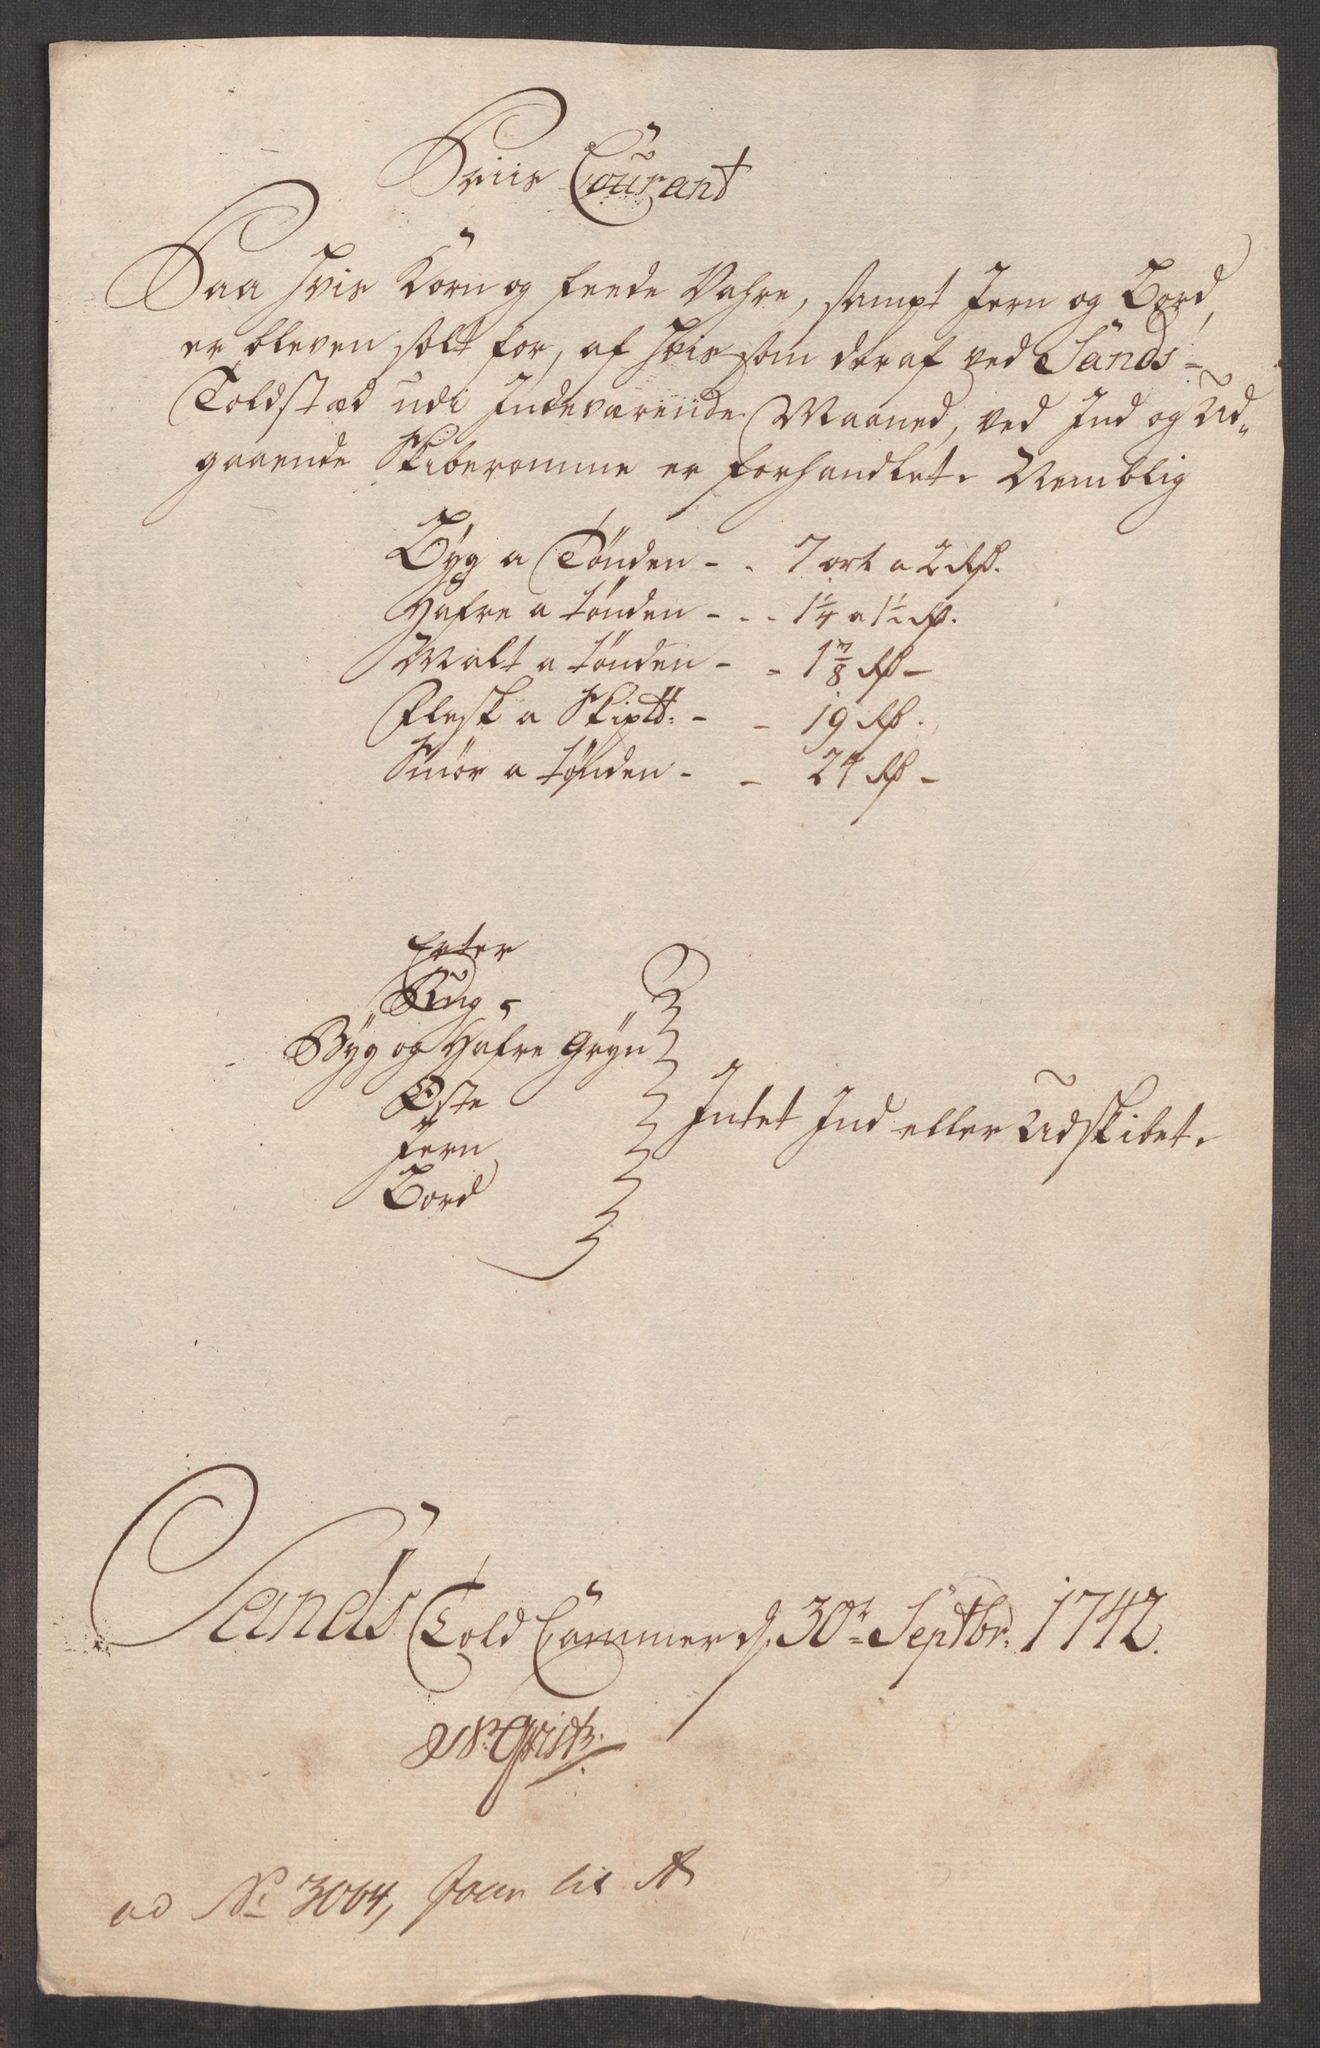 Priis Courant
Paa hvis Korn og feede Vahre, sampt Jern og Bord,
er bleven solt for, af hvis som deraf ved Sands-
Toldsted udi Indeværende Maaned, ved Ind og Ud-
gaaende Skiberomme er forhandlet. Nemblig
Byg a Tønden - . 7 ort a 2 Rd.
Hafre a Tønden - . . 1¼ a 1½ Rd.
Malt a Tønden - - 1⅞ Rd -
Flesk a Skip℔: - - 19 Rd.
Smør a Tønden - - 24 Rd -
Erter
Rug
Byg og Hafre Gryn
Oste
Jern
Bord
Intet Ind eller Udskibet.
Sands Told Cammer d. 30te Septbr. 1742.
ad No 3004, Jour Lit A